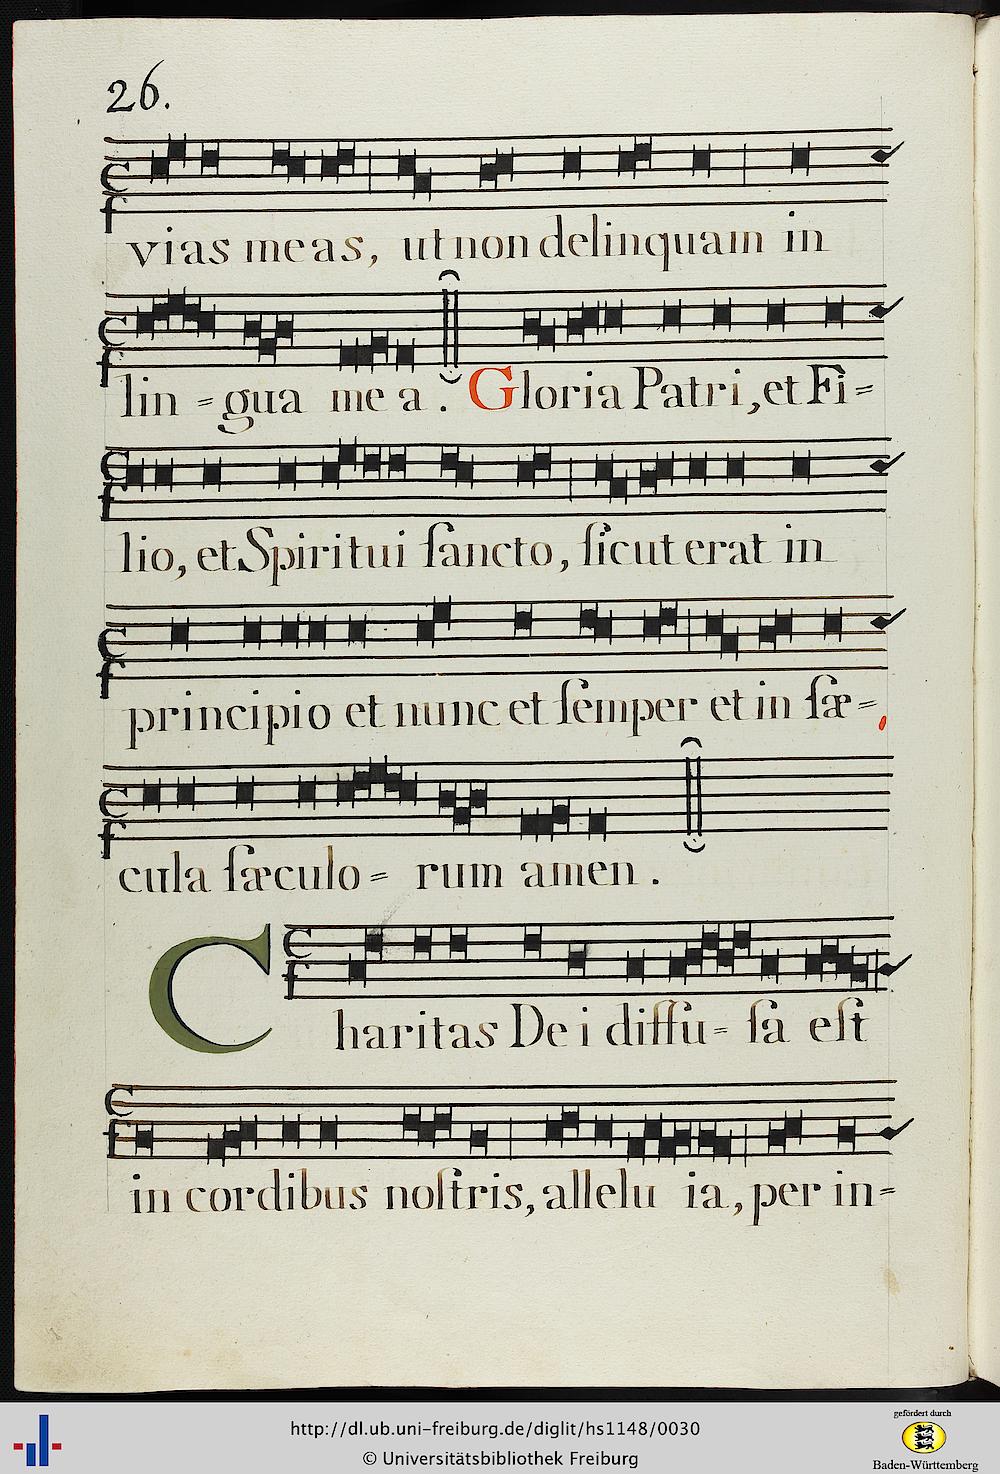 26.
vias meas, ut non delinquam in
lin = gua me a. Gloria Patri, et Fi=
lio, et Spiritui ſancto, ſicut erat in
principio et nunc et ſemper et in ſæ=
cula ſæculo = rum amen.
Charitas Dei diffu= ſa eſt
in cordibus noſtris, allelu ia, per in=
http://dl.ub.uni-freiburg.de/diglit/hs1148/0030
© Universitätsbibliothek Freiburg
gefördert durch
Baden-Württemberg